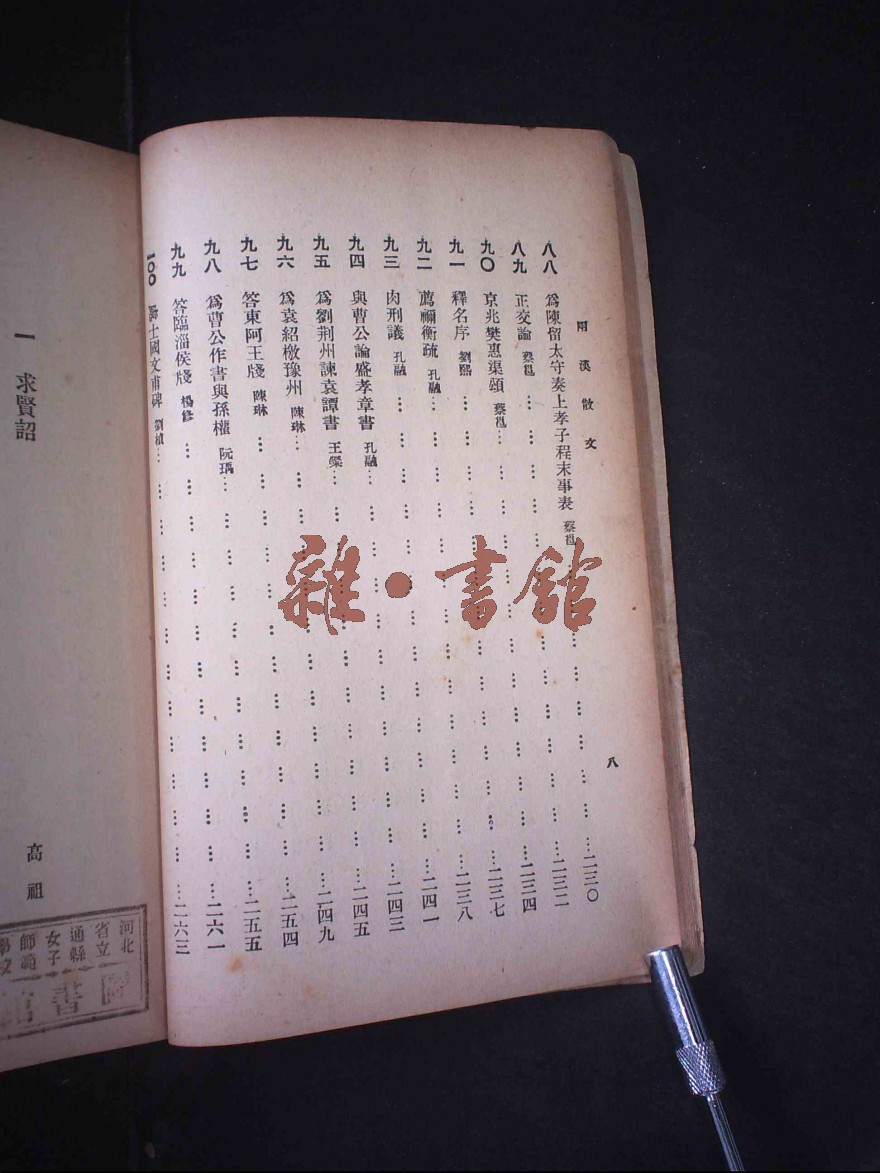 兩漢散文
八
八八 爲陳留太守奏上孝子程末事表 蔡邕 …… 二三〇
八九 正交論 蔡邕 …… 二三二
九〇 京兆樊惠渠頌 蔡邕 …… 二三四
九一 釋名序 劉熙 …… 二三七
九二 薦禰衡疏 孔融 …… 二三八
九三 肉刑議 孔融 …… 二四一
九四 與曹公論盛孝章書 孔融 …… 二四三
九五 爲劉荆州諫袁譚書 王粲 …… 二四五
九六 爲袁紹檄豫州 陳琳 …… 二四九
九七 答東阿王牋 陳琳 …… 二五四
九八 爲曹公作書與孫權 阮瑀 …… 二五五
九九 答臨淄侯牋 楊修 …… 二六一
100 處士國文甫碑 劉楨 …… 二六三
一 求賢詔
高祖
河北
省立
通縣
女子
師範
學校
圖書
雜·書館